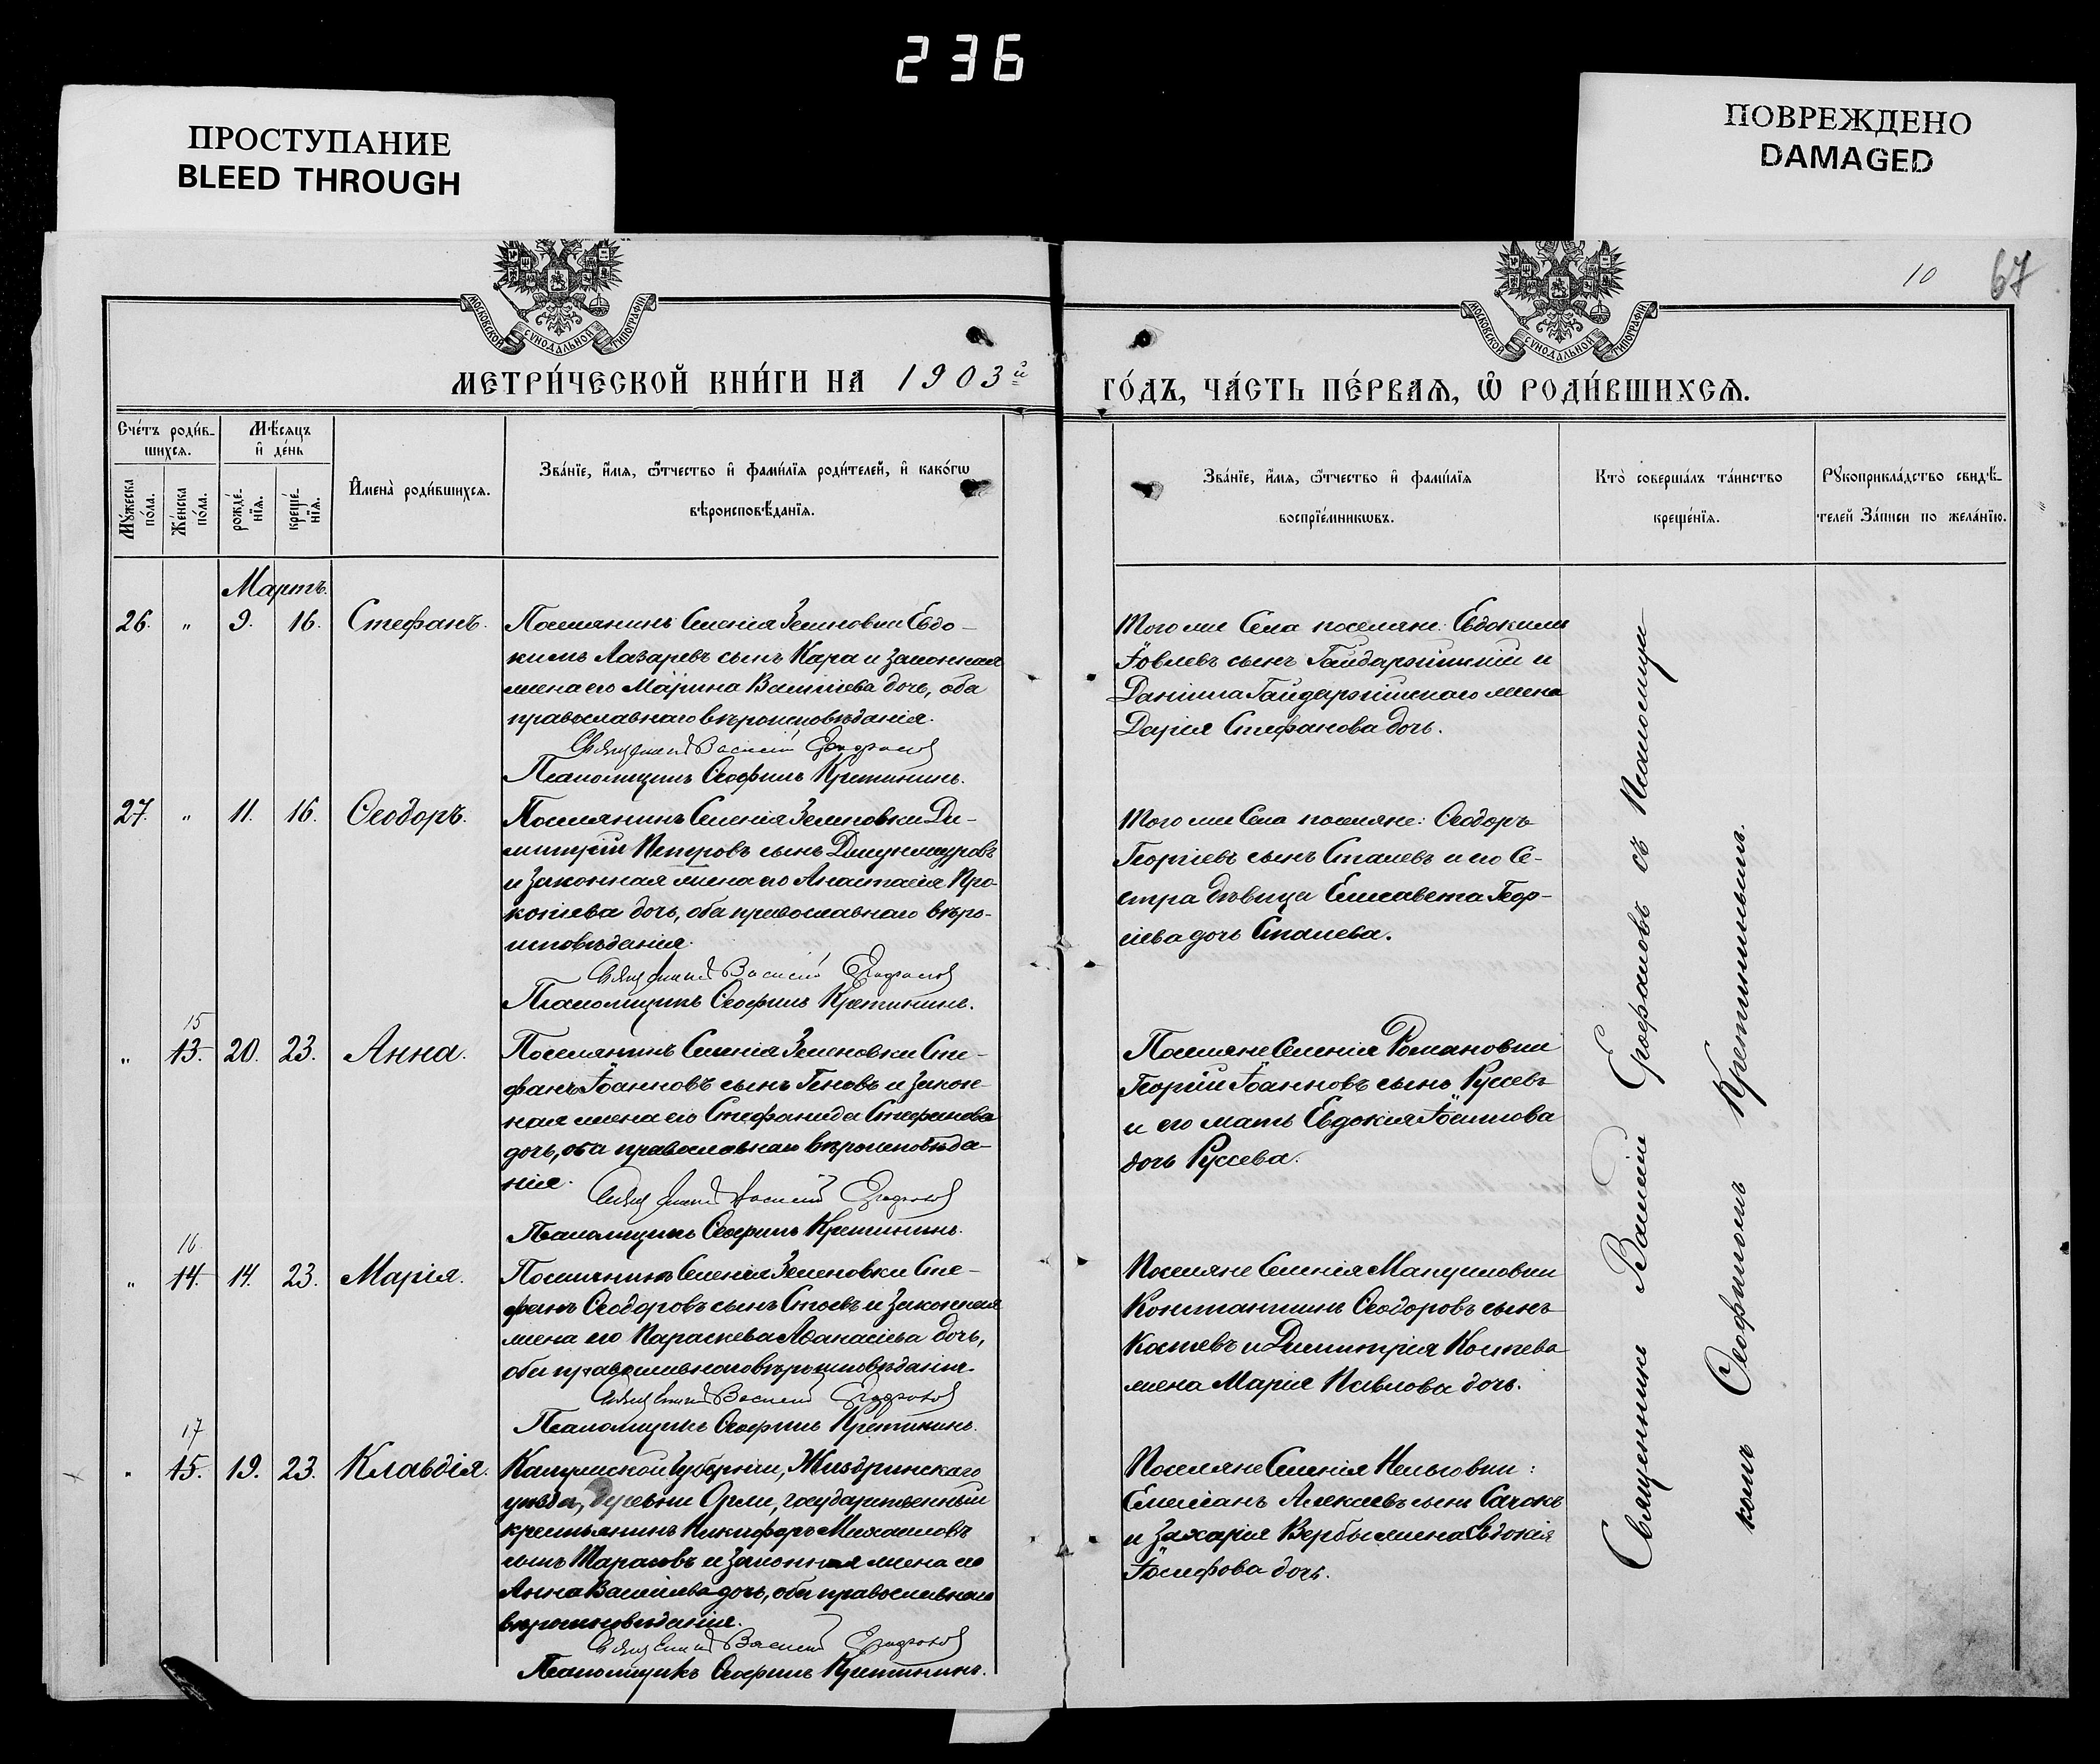 236
ПРОСТУПАНИЕ
BLEED THROUGH
ПОВРЕЖДЕНО
DAMAGED
10
67
МОСКОВСКОЙ СУНОДАЛЬНОЙ ТИПОГРАФІИ
МОСКОВСКОЙ СУНОДАЛЬНОЙ ТИПОГРАФІИ.
МЕТРИ́ЧЕСКОЙ КНИ́ГИ НА 1903й
ГО́ДЪ, ЧА́СТЬ ПЕ́РВАЯ, Ѡ РОДИ́ВШИХСЯ.
Сче́тъ роди́в-
шихся.
Мѣ́сяцъ
и де́нь
Му́жеска
по́ла.
Же́нска
по́ла.
рожде́-
нїя.
креще́-
нїя.
Имена̀ роди́вшихся.
Зва́нїе, и́мя, ѻ́тчество и фами́лїя роди́телей, и како́гѡ
вѣроисповѣ́данїя.
Зва́нїе, и́мя, ѻ́тчество и фами́лїя
воспрїе́мникѡвъ.
Кто̀ соверша́лъ та́инство
креще́нїя.
Рукоприкла́дство свидѣ́-
телей За́писи по жела́нїю.
Мартъ.
26. „ 9. 16. Стефанъ.
Поселянинъ Селенія Зеленовки Евдо-
кимъ Лазаревъ сынъ Кара и законная
жена его Марина Васильева дочь, оба
православнаго вѣроисповѣданія.
Священникъ Василій Ерофаловъ
Псаломщикъ Ѳеофилъ Кретининъ.
Того же Села поселяне: Евдокимъ
Іовлевъ сынъ Гайдаржійскій и
Даніила Гайдаржійскаго жена
Дарія Стефанова дочь.
27. „ 11. 16. Ѳеодоръ.
Поселянинъ Селенія Зеленовки Ди-
митрій Петровъ сынъ
и законная жена его Анастасія Про-
копіева дочь, оба православнаго вѣро-
исповѣданія.
Священникъ Василій Ерофаловъ
Псаломщикъ Ѳеофилъ Кретининъ.
Того же Села поселяне: Ѳеодоръ
Георгіевъ сынъ Сталевъ и его Се-
стра дѣвица Елисавета Геор-
гіева дочь Сталева.
15
„ 13. 20. 23. Анна.
Поселянинъ Селенія Зеленовки Сте-
фанъ Іоанновъ сынъ Геновъ и закон-
ная жена его Стефанида Стефанова
дочь, оба православнаго вѣроисповѣда-
нія.
Священникъ Василій Ерофаловъ
Псаломщикъ Ѳеофилъ Кретининъ.
Поселяне Селенія Романовки
Георгій Іоанновъ сынъ Руссевъ
и его мать Евдокія
дочь Руссева.
16
„ 14. 14. 23. Марія.
Поселянинъ Селенія Зеленовки Сте-
фанъ Ѳеодоровъ сынъ Стоевъ и законная
жена его Параскева Аѳанасіева дочь,
оба православнаго вѣроисповѣданія.
Священникъ Василій Ерофаловъ
Псаломщикъ Ѳеофилъ Кретининъ.
Поселяне Селенія Мануиловки
Константинъ Ѳеодоровъ сынъ
Костевъ и Димитрія Костева
жена Марія Павлова дочь.
17
„ 15. 19. 23. Клавдія.
Калужской Губерніи, Жиздринскаго
уѣзда, деревни Орли, государственный
крестьянинъ Никифоръ Михаиловъ
сынъ Тарасовъ и законная жена его
Анна Васильева дочь, оба православнаго
вѣроисповѣданія.
Священникъ Василій Ерофаловъ
Псаломщикъ Ѳеофилъ Кретининъ.
Поселяне Селенія Нельговки:
Емеліанъ Алексѣевъ сынъ Сачокъ
и Захарія Вербы жена Евдокія
Іосифова дочь.
Священникъ Василій Ерофаловъ съ Псаломщи
комъ Ѳеофиломъ Кретининымъ.